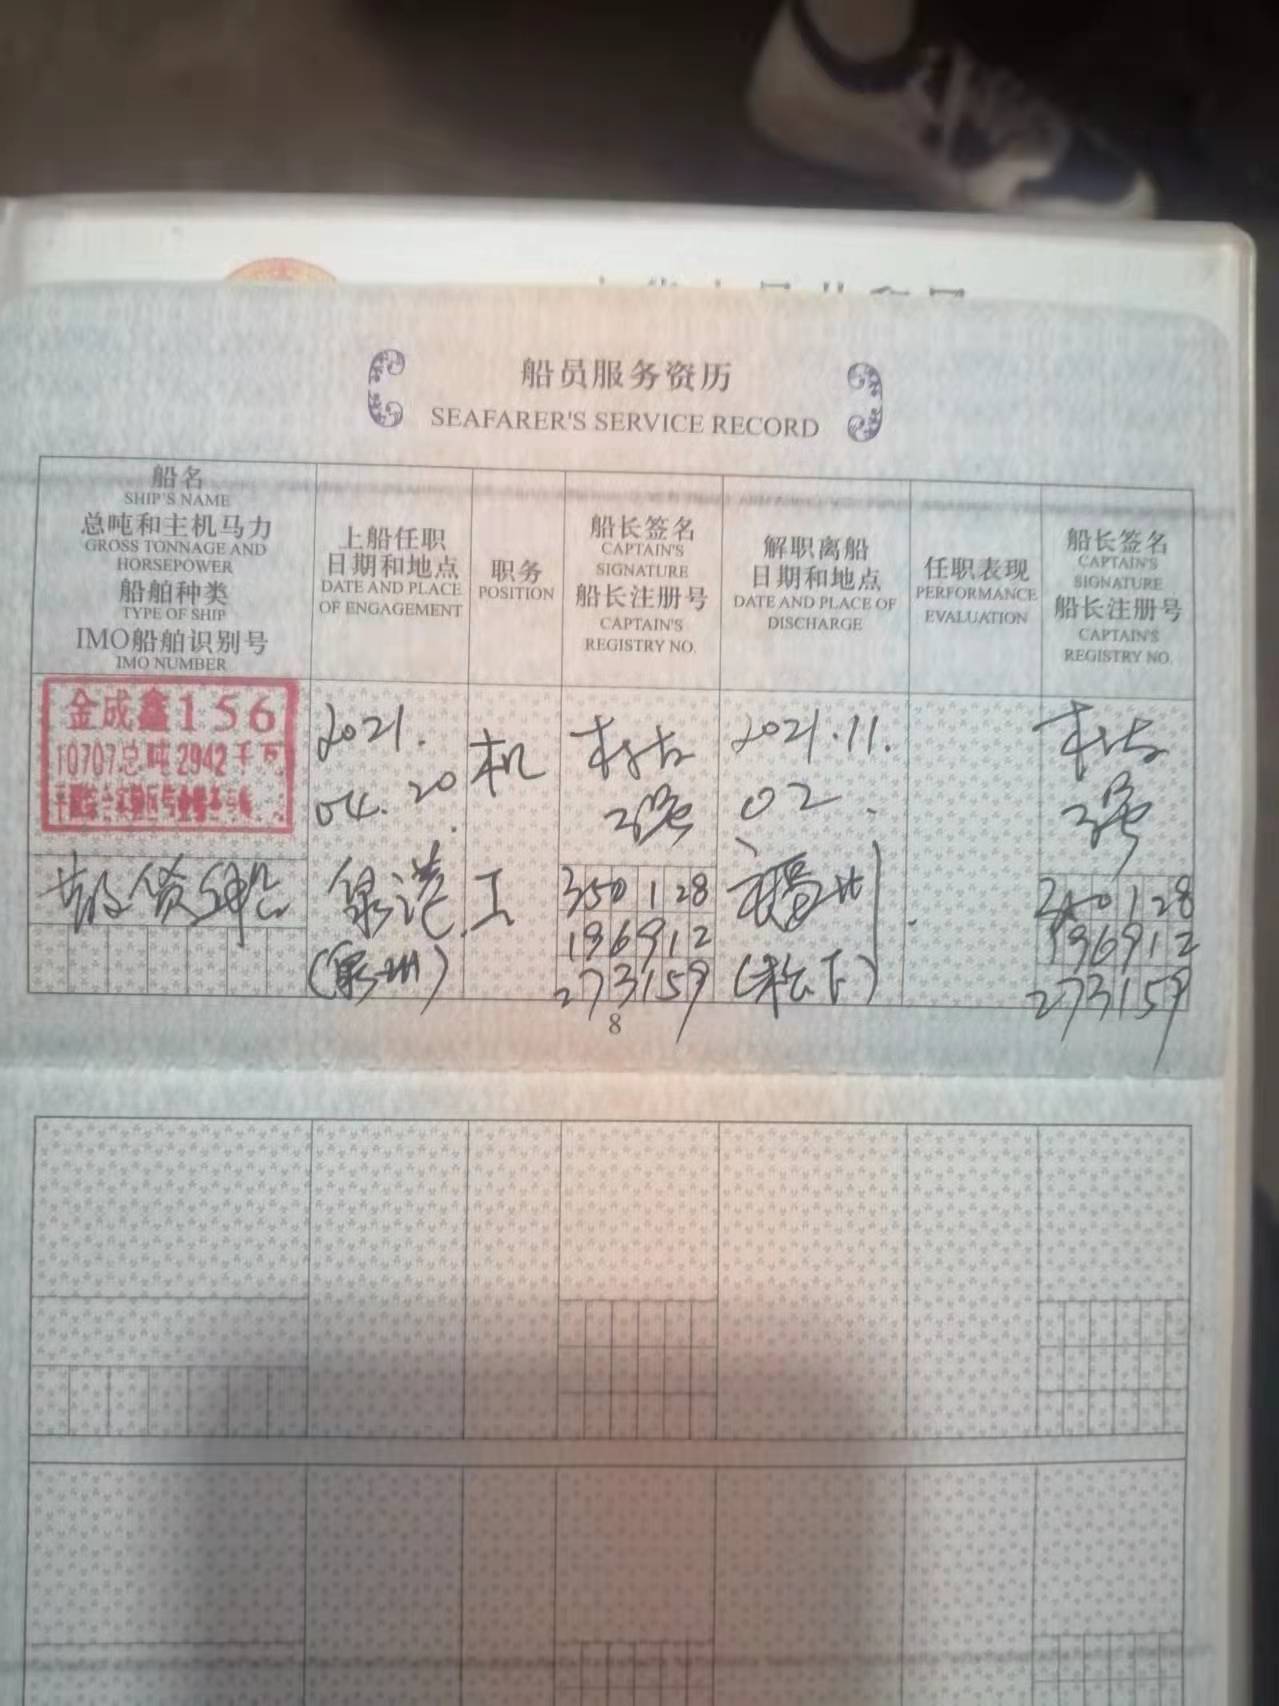 船员服务资历
SEAFARER'S SERVICE RECORD
船名
SHIP'S NAME
总吨和主机马力
GROSS TONNAGE AND
HORSEPOWER
船舶种类
TYPE OF SHIP
IMO船舶识别号
IMO NUMBER
上船任职
日期和地点
DATE AND PLACE
OF ENGAGEMENT
职务
POSITION
船长签名
CAPTAIN'S
SIGNATURE
船长注册号
CAPTAIN'S
REGISTRY NO.
解职离船
日期和地点
DATE AND PLACE OF
DISCHARGE
任职表现
PERFORMANCE
EVALUATION
船长签名
CAPTAIN'S
SIGNATURE
船长注册号
CAPTAIN'S
REGISTRY NO.
金成鑫156
10707总吨2942千瓦
散货船
2021.
04.20.
泉港.
(泉州)
机
工
350128
196912
273159
2021.11.
02.
福州
(松下)
350128
196912
273159
8